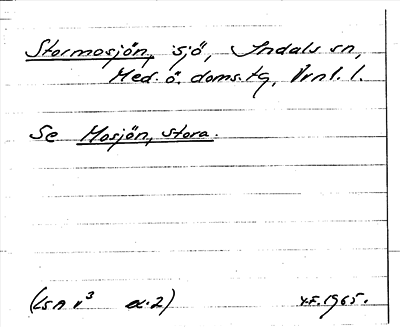 Stormosjön, sjö, Indals sn,
Med. ö. doms.tg, Vrnl. l.
Se Mosjön, stora.
(LSA V³ a:2) Y.F. 1965.